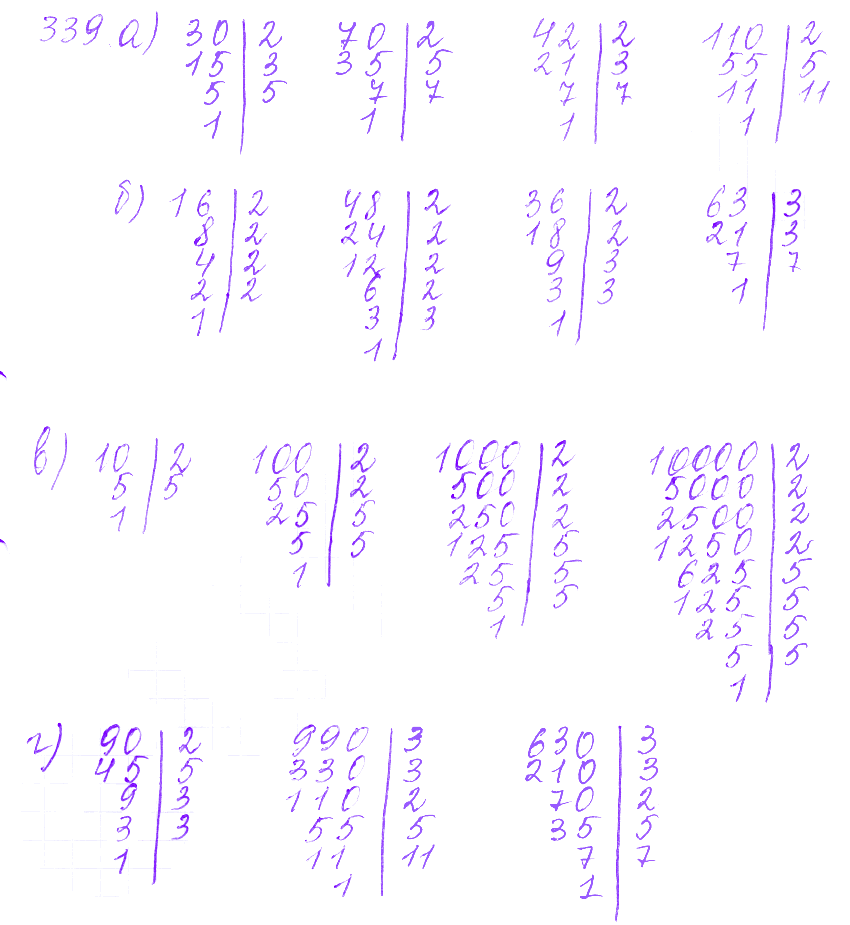 339 а) 30 | 2 70 | 2 42 | 2 110 | 2
15 | 3 35 | 5 21 | 3 55 | 5
5 | 5 7 | 7 7 | 7 11 | 11
1 | 1 | 1 | 1 |
б) 16 | 2 48 | 2 36 | 2 63 | 3
8 | 2 24 | 2 18 | 2 21 | 3
4 | 2 12 | 2 9 | 3 7 | 7
2 | 2 6 | 2 3 | 3 1 |
1 | 3 | 3 1 |
1 |
в) 10 | 2 100 | 2 1000 | 2 10000 | 2
5 | 5 50 | 2 500 | 2 5000 | 2
1 | 25 | 5 250 | 2 2500 | 2
5 | 5 125 | 5 1250 | 2
1 | 25 | 5 625 | 5
5 | 5 125 | 5
1 | 25 | 5
5 | 5
1 |
г) 90 | 2 990 | 3 630 | 3
45 | 5 330 | 3 210 | 3
9 | 3 110 | 2 70 | 2
3 | 3 55 | 5 35 | 5
1 | 11 | 11 7 | 7
1 | 1 |